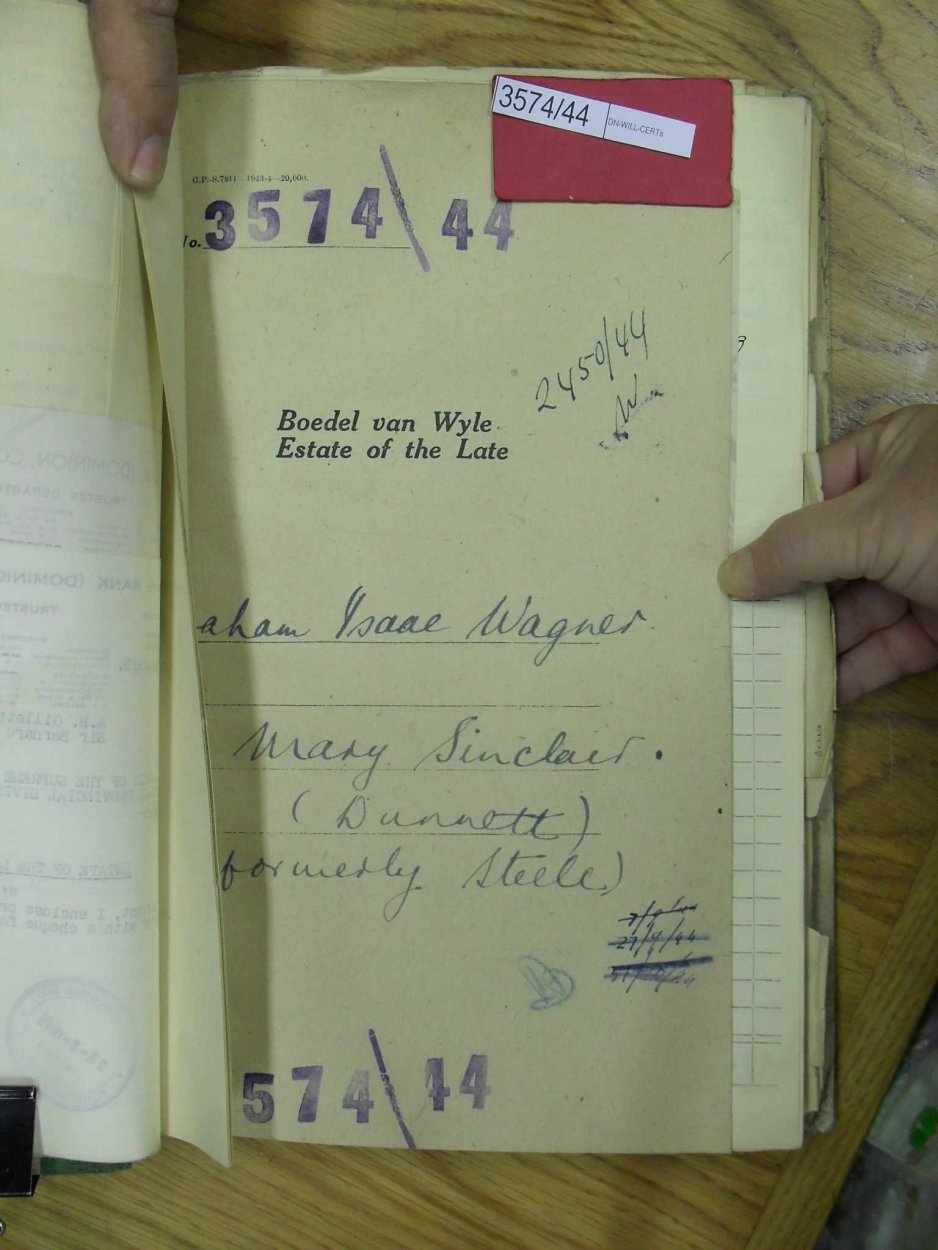 3574/44 DN-WILL-CERTs
G.P.-S.7811-1943-4-20,000.
o. 3574\44
2450/44
Boedel van Wyle
Estate of the Late
aham Isaac Wagner
Mary Sinclair.
(Dunnett)
formerly Steele)
27/9/44
574\44
(DOMINION, CO
BANK (DOMINIO
TRUSTE
A.E. Gillett
Sir Bernard
OF THE SUPREME
PROVINCIAL DIVISI
ESTATE OF THE
I enclose
with a cheque fo